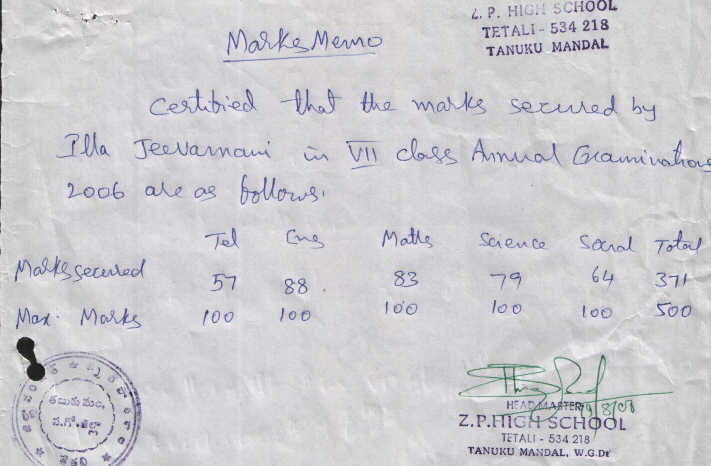 Z. P. HIGH SCHOOL
TETALI - 534 218
TANUKU MANDAL
Marks Memo
Certified that the marks secured by
Illa Jeevamani in VII class Annual Examinations
2006 are as follows.
Tel Eng Maths Science Social Total
Marks secured 57 88 83 79 64 371
Max. Marks 100 100 100 100 100 500
HEAD MASTER
Z.P.HIGH SCHOOL
TETALI - 534 218
TANUKU MANDAL, W.G.Dt